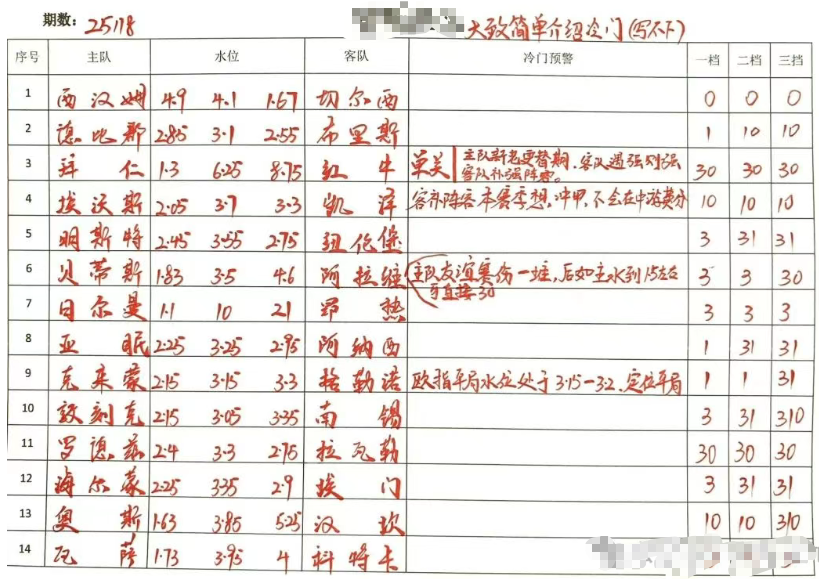 期数: 25118 大致简单介绍冷门(写不下)
序号 主队 水位 客队 冷门预警 一档 二档 三挡
1 西汉姆 4.9 4.1 1.67 切尔西 0 0 0
2 德比郡 2.85 3.1 2.55 布里斯 1 10 10
3 拜仁 1.3 6.25 8.75 红牛 单关 主队新老更替期,客队遇强则强 30 30 30
客队补强阵容。
4 埃沃斯 2.05 3.7 3.3 凯泽 客补阵容本赛季想,冲甲,不会在中游 10 10 10
5 明斯特 2.45 3.55 2.75 纽伦堡 3 31 31
6 贝蒂斯 1.83 3.5 4.6 阿拉维 主队友谊赛伤一堆,后如主水到1.5左右 3 3 30
可直接30
7 日尔曼 1.1 10 21 昂热 3 3 3
8 亚眠 2.25 3.25 2.95 阿纳西 1 31 31
9 克莱蒙 2.15 3.15 3.3 格勒诺 欧指平局水位处于3.15-3.2,定位平局 1 1 31
10 敦刻克 2.15 3.05 3.35 南锡 3 31 310
11 罗德兹 2.4 3.3 2.75 拉瓦勒 30 30 30
12 海尔蒙 2.25 3.35 2.9 埃门 3 31 31
13 奥斯 1.63 3.85 5.25 汉坎 10 10 310
14 瓦萨 1.73 3.95 4 科特卡